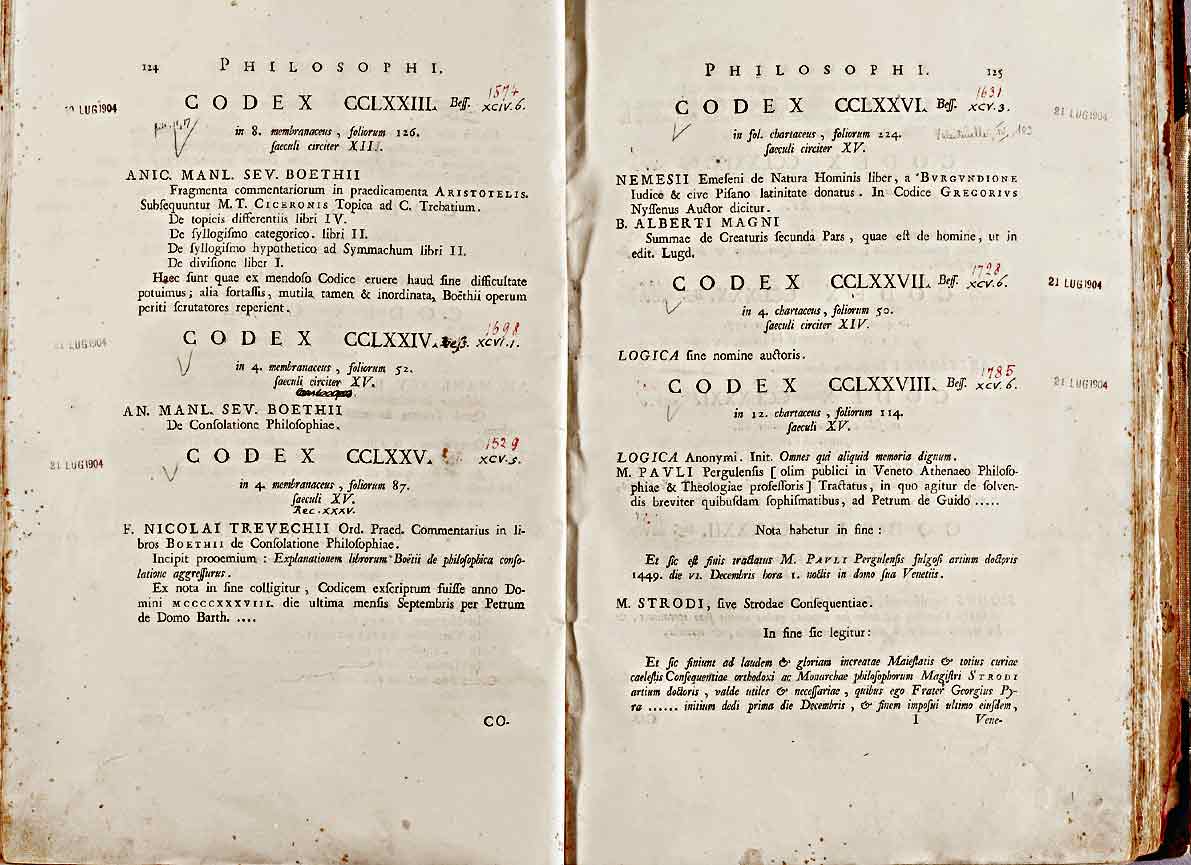 124 PHILOSOPHI.
1574
20 LUG 1904 CODEX CCLXXIII. Bess. XCIV. 6.
in 8. membranaceus , foliorum 126.
ſaeculi circiter XII.
ANIC. MANL. SEV. BOETHII
Fragmenta commentariorum in praedicamenta ARISTOTELIS.
Subſequuntur M. T. CICERONIS Topica ad C. Trebatium.
De topicis differentiis libri IV.
De ſyllogiſmo categorico. libri II.
De ſyllogiſmo hypothetico ad Symmachum libri II.
De diviſione liber I.
Haec ſunt quae ex mendoſo Codice eruere haud ſine difficultate
potuimus ; alia fortaſſis, mutila tamen & inordinata, Boëthii operum
periti ſcrutatores reperient.
1698
21 LUG 1904 CODEX CCLXXIV. Beſſ. XCVI. 1.
in 4. membranaceus , foliorum 52.
ſaeculi circiter XV.
AN. MANL. SEV. BOETHII
De Conſolatione Philoſophiae.
1529
21 LUG 1904 CODEX CCLXXV. XCV. 5.
in 4. membranaceus , foliorum 87.
ſaeculi XV.
Rec. XXXV.
F. NICOLAI TREVECHII Ord. Praed. Commentarius in li-
bros BOETHII de Conſolatione Philoſophiae.
Incipit prooemium : Explanationem librorum Boëtii de philoſophica conſo-
latione aggreſſurus.
Ex nota in fine colligitur , Codicem exſcriptum fuiſſe anno Do-
mini MCCCCXXXVIII. die ultima menſis Septembris per Petrum
de Domo Barth. ....
CO-
PHILOSOPHI. 125
1631
CODEX CCLXXVI. Beſſ. XCV. 3. 21 LUG 1904
in fol. chartaceus , foliorum 224.
ſaeculi circiter XV.
NEMESII Emeſeni de Natura Hominis liber, a BVRGVNDIONE
Iudice & cive Piſano latinitate donatus . In Codice GREGORIVS
Nyſſenus Auctor dicitur.
B. ALBERTI MAGNI
Summae de Creaturis ſecunda Pars , quae eſt de homine, ut in
edit. Lugd.
1728
CODEX CCLXXVII. Beſſ. XCV. 6. 21 LUG 1904
in 4. chartaceus , foliorum 50.
ſaeculi circiter XIV.
LOGICA ſine nomine auctoris.
1785
CODEX CCLXXVIII. Beſſ. XCV. 6. 21 LUG 1904
in 12. chartaceus , foliorum 114.
ſaeculi XV.
LOGICA Anonymi. Init. Omnes qui aliquid memoria dignum.
M. PAVLI Pergulenſis [ olim publici in Veneto Athenaeo Philoſo-
phiae & Theologiae profeſſoris ] Tractatus, in quo agitur de ſolven-
dis breviter quibuſdam ſophiſmatibus, ad Petrum de Guido .....
Nota habetur in fine :
Et ſic eſt finis tractatus M. PAVLI Pergulenſis fulgoſi artium doctoris
1449. die VI. Decembris hora I. noctis in domo ſua Venetiis.
M. STRODI, ſive Strodae Conſequentiae.
In fine ſic legitur :
Et ſic finiunt ad laudem & gloriam increatae Maieſtatis & totius curiae
caeleſtis Conſequentiae orthodoxi ac Monarchae philoſophorum Magiſtri STRODI
artium doctoris , valde utiles & neceſſariae , quibus ego Frater Georgius Py-
ra ...... initium dedi prima die Decembris , & finem impoſui ultimo eiuſdem ,
I Vene-